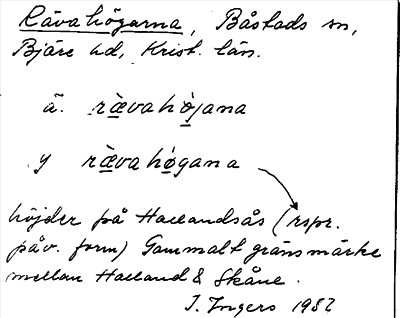 Rävahögarna, Båstads sn,
Bjäre hd, Krist. län.
ä. ræ̀vahò̱jana
y ræ̀vahǿgana
höjder på Hallandsås (rspr.
påv. form) Gammalt gränsmärke
mellan Halland & Skåne.
I. Ingers 1982